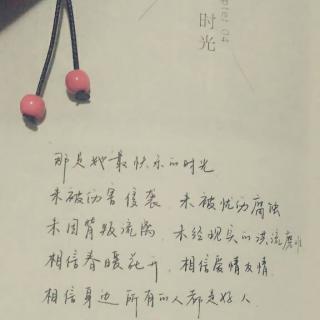 Chapter 04
时光
那是她最快乐的时光
未被伤害侵袭、未被忧伤腐蚀
未因背叛流离、未经现实的洪流磨
相信春暖花开，相信爱情友情
相信身边所有的人都是好人